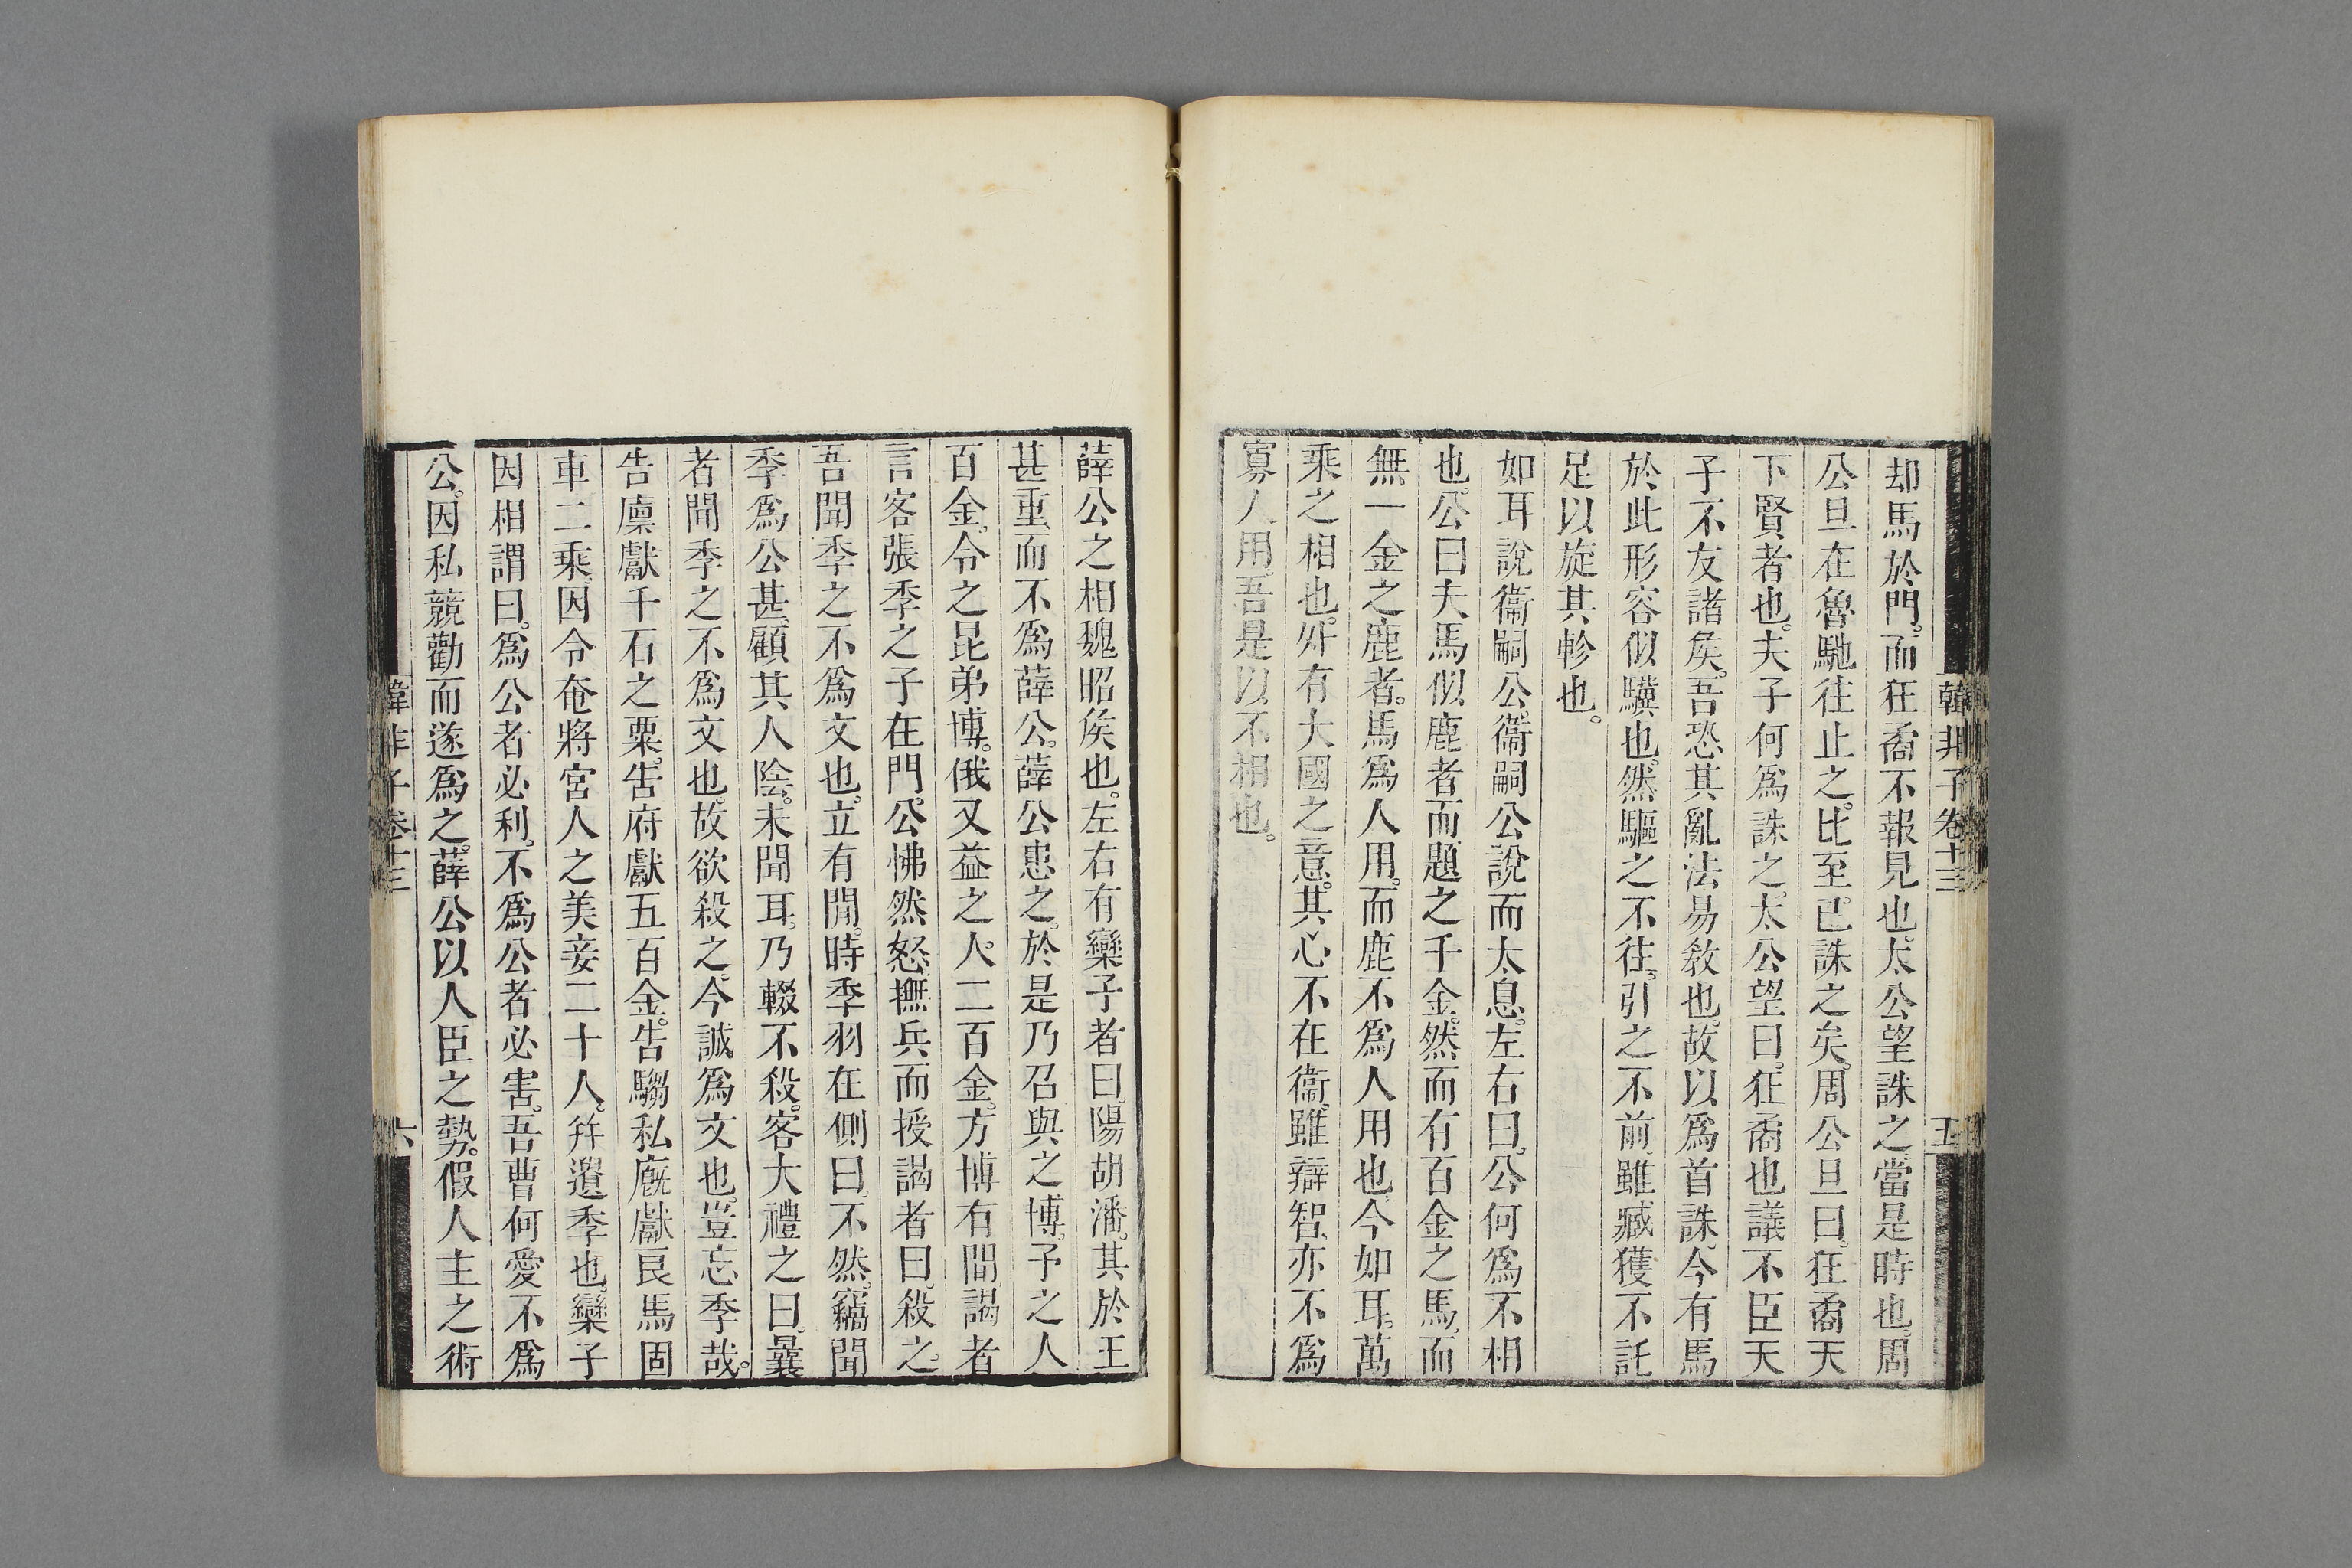 韓非子卷十三
五
却馬於門。而狂矞不報見也。太公望誅之。當是時也。周
公旦在魯馳往止之。比至。已誅之矣。周公旦曰。狂矞天
下賢者也。夫子何爲誅之。太公望曰。狂矞也議不臣天
子不友諸矦。吾恐其亂法易敎也。故以爲首誅。今有馬
於此形容似驥也。然驅之不往。引之不前。雖臧獲不託
足以旋其軫也。
如耳說衞嗣公。衞嗣公說而太息。左右曰。公何爲不相
也。公曰夫馬似鹿者而題之千金。然而有百金之馬。而
無一金之鹿者。馬爲人用。而鹿不爲人用也。今如耳。萬
乘之相也。外有大國之意。其心不在衞。雖辯智。亦不爲
寡人用。吾是以不相也。
薛公之相魏昭矦也。左右有欒子者曰。陽胡潘。其於王
甚重。而不爲薛公。薛公患之。於是乃召與之博。予之人
百金。令之昆弟博。俄又益之人。二百金。方博有間。謁者
言客張季之子在門。公怫然怒。撫兵而授謁者曰。殺之。
吾聞季之不爲文也。立有閒。時季羽在側曰。不然。竊聞
季爲公甚。顧其人陰。未聞耳。乃輟不殺。客大禮之曰。曩
者聞季之不爲文也。故欲殺之。今誠爲文也。豈忘季哉。
告廩獻千石之粟。告府獻五百金。告騶私廐獻良馬固
車二乘。因令奄將宮人之美妾二十人。幷遺季也。欒子
因相謂曰。爲公者必利。不爲公者必害。吾曹何愛不爲
公。因私競勸而遂爲之。薛公以人臣之勢。假人主之術
韓非子卷十三
六